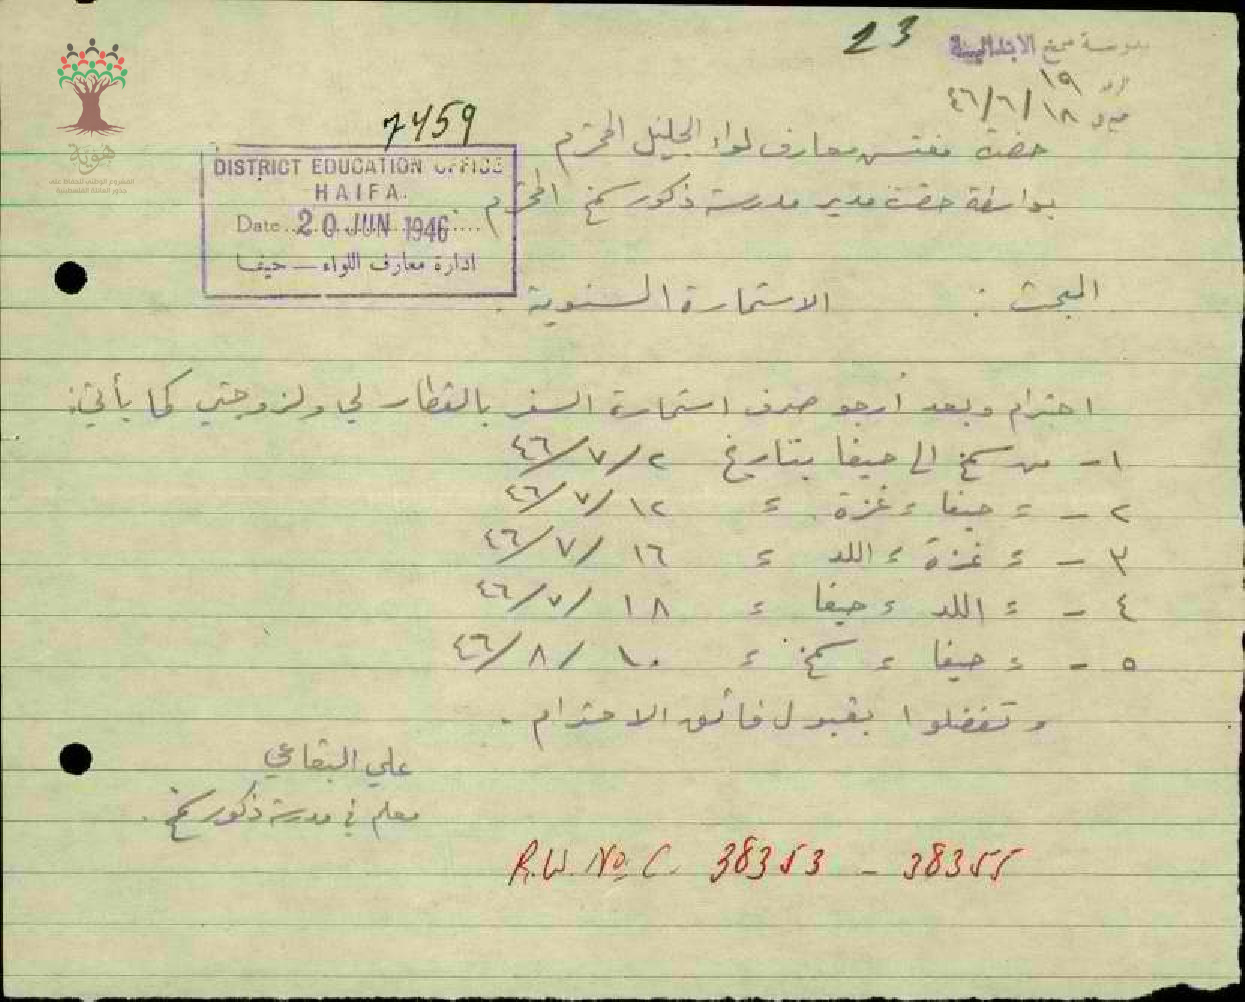 23
مدرسة سمخ الابتدائية
١٩
١٨/٦/٤٦
7459
حضرة مفتش معارف لواء الجليل المحترم
DISTRICT EDUCATION OFFICE
HAIFA.
Date 20 JUN 1946
ادارة معارف اللواء — حيفا
بواسطة حضرة مدير مدرسة ذكور سمخ المحترم .
البحث : الاستمارة السنوية .
احترام وبعد أرجو صرف استمارة السفر بالقطار لي ولزوجتي كما يأتي:
١ - من سمخ الى حيفا بتاريخ ٢/٧/٤٦
٢ - ء حيفا ء غزة ء ١٢/٧/٤٦
٣ - ء غزة ء اللد ء ١٦/٧/٤٦
٤ - ء اللد ء حيفا ء ١٨/٧/٤٦
٥ - ء حيفا ء سمخ ء ١٠/٨/٤٦
وتفضلوا بقبول فائق الاحترام .
علي البقاعي
معلم في مدرسة ذكور سمخ .
R.W. No. C. 38353 - 38355
هوية
المشروع الوطني للحفاظ على
جذور العائلة الفلسطينية